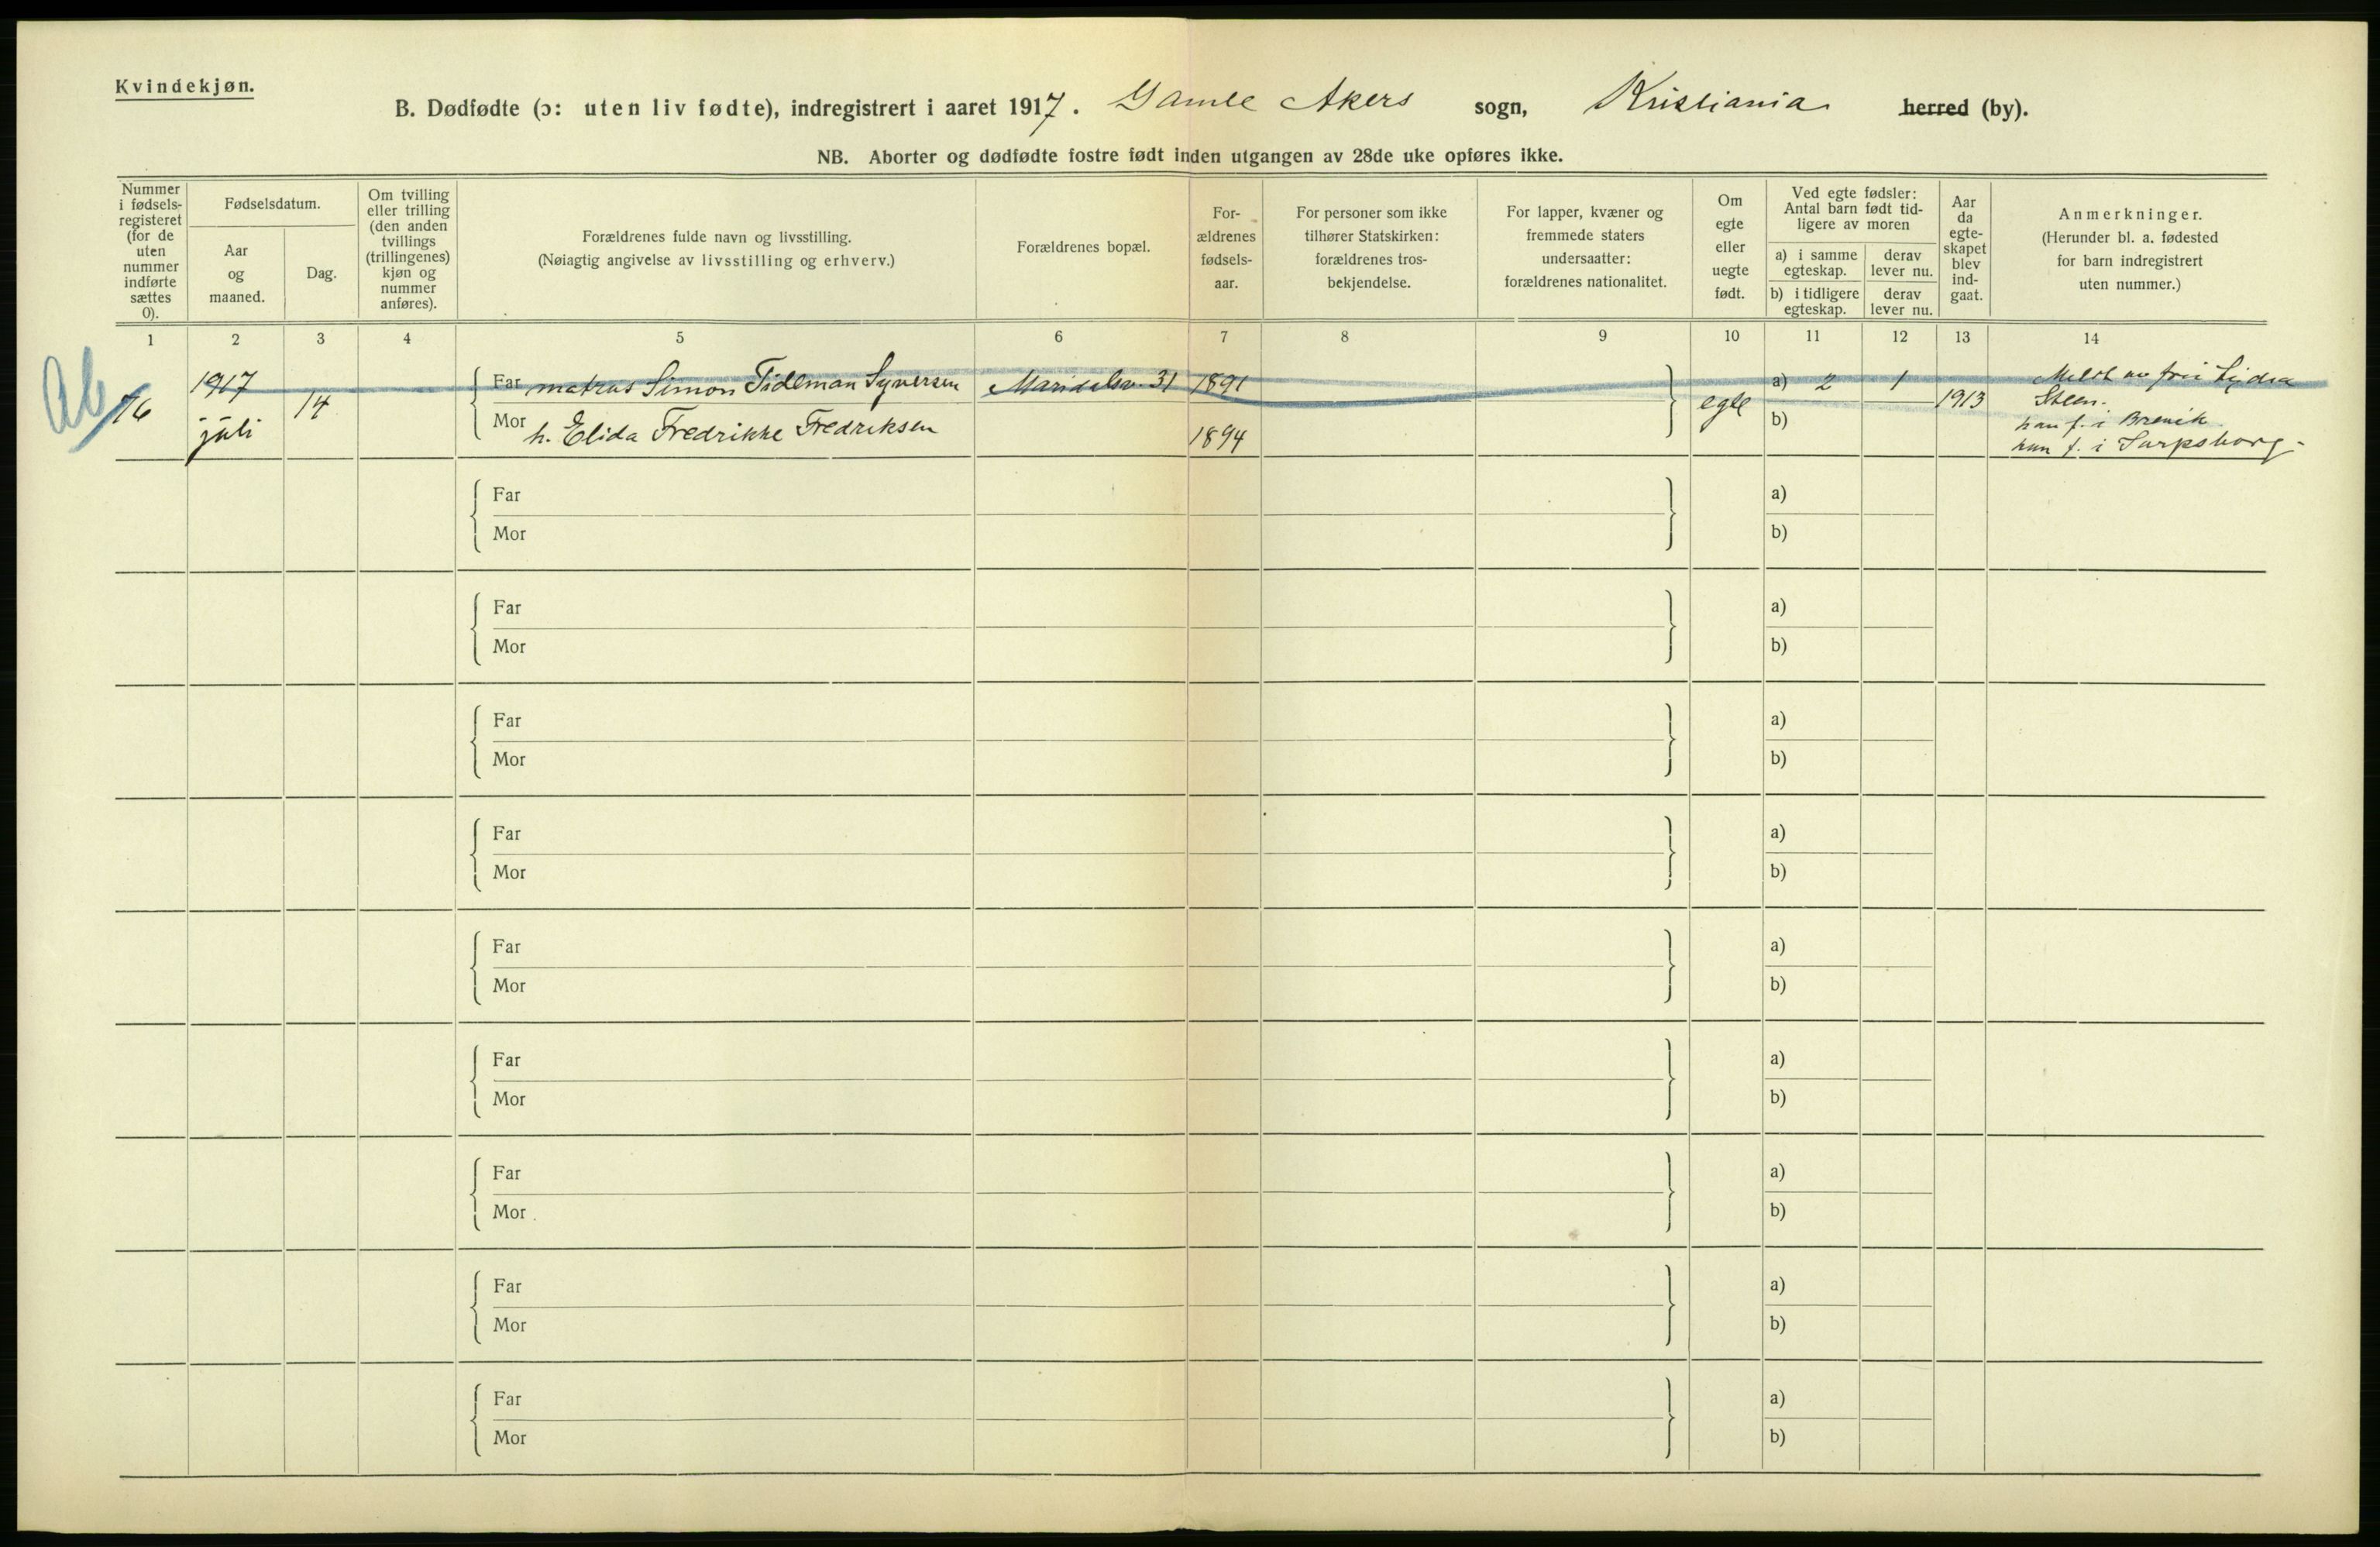 Kvindekjøn.
B. Dødfødte (ɔ: uten liv fødte), indregistrert i aaret 1917. Gamle Akers sogn, Kristiania herred (by).
NB. Aborter og dødfødte fostre født inden utgangen av 28de uke opføres ikke.
Nummer i fødsels-registeret (for de uten nummer indførte sættes 0).
Fødselsdatum.
Aar og maaned.
Dag.
Om tvilling eller trilling (den anden tvillings (trillingenes) kjøn og nummer anføres).
Forældrenes fulde navn og livsstilling.
(Nøiagtig angivelse av livsstilling og erhverv.)
Forældrenes bopæl.
For-ældrenes fødsels-aar.
For personer som ikke tilhører Statskirken: forældrenes tros-bekjendelse.
For lapper, kvæner og fremmede staters undersaatter: forældrenes nationalitet.
Om egte eller uegte født.
Ved egte fødsler: Antal barn født tid-ligere av moren
a) i samme egteskap.
derav lever nu.
b) i tidligere egteskap.
derav lever nu.
Aar da egte-skapet blev ind-gaat.
Anmerkninger.
(Herunder bl. a. fødested for barn indregistrert uten nummer.)
1 2 3 4 5 6 7 8 9 10 11 12 13 14
Ab
16 1917 juli 14
Far matros Simon Tideman Syversen Maridalsv. 31 1891
Mor h. Elida Fredrikke Fredriksen 1894
egte
a) 2 1
b)
1913
Meldt av frøi Lydia
Steen.
han f. i Brevik.
hun f. i Sarpsborg.
Far a)
Mor b)
Far a)
Mor b)
Far a)
Mor b)
Far a)
Mor b)
Far a)
Mor b)
Far a)
Mor b)
Far a)
Mor b)
Far a)
Mor b)
Far a)
Mor b)